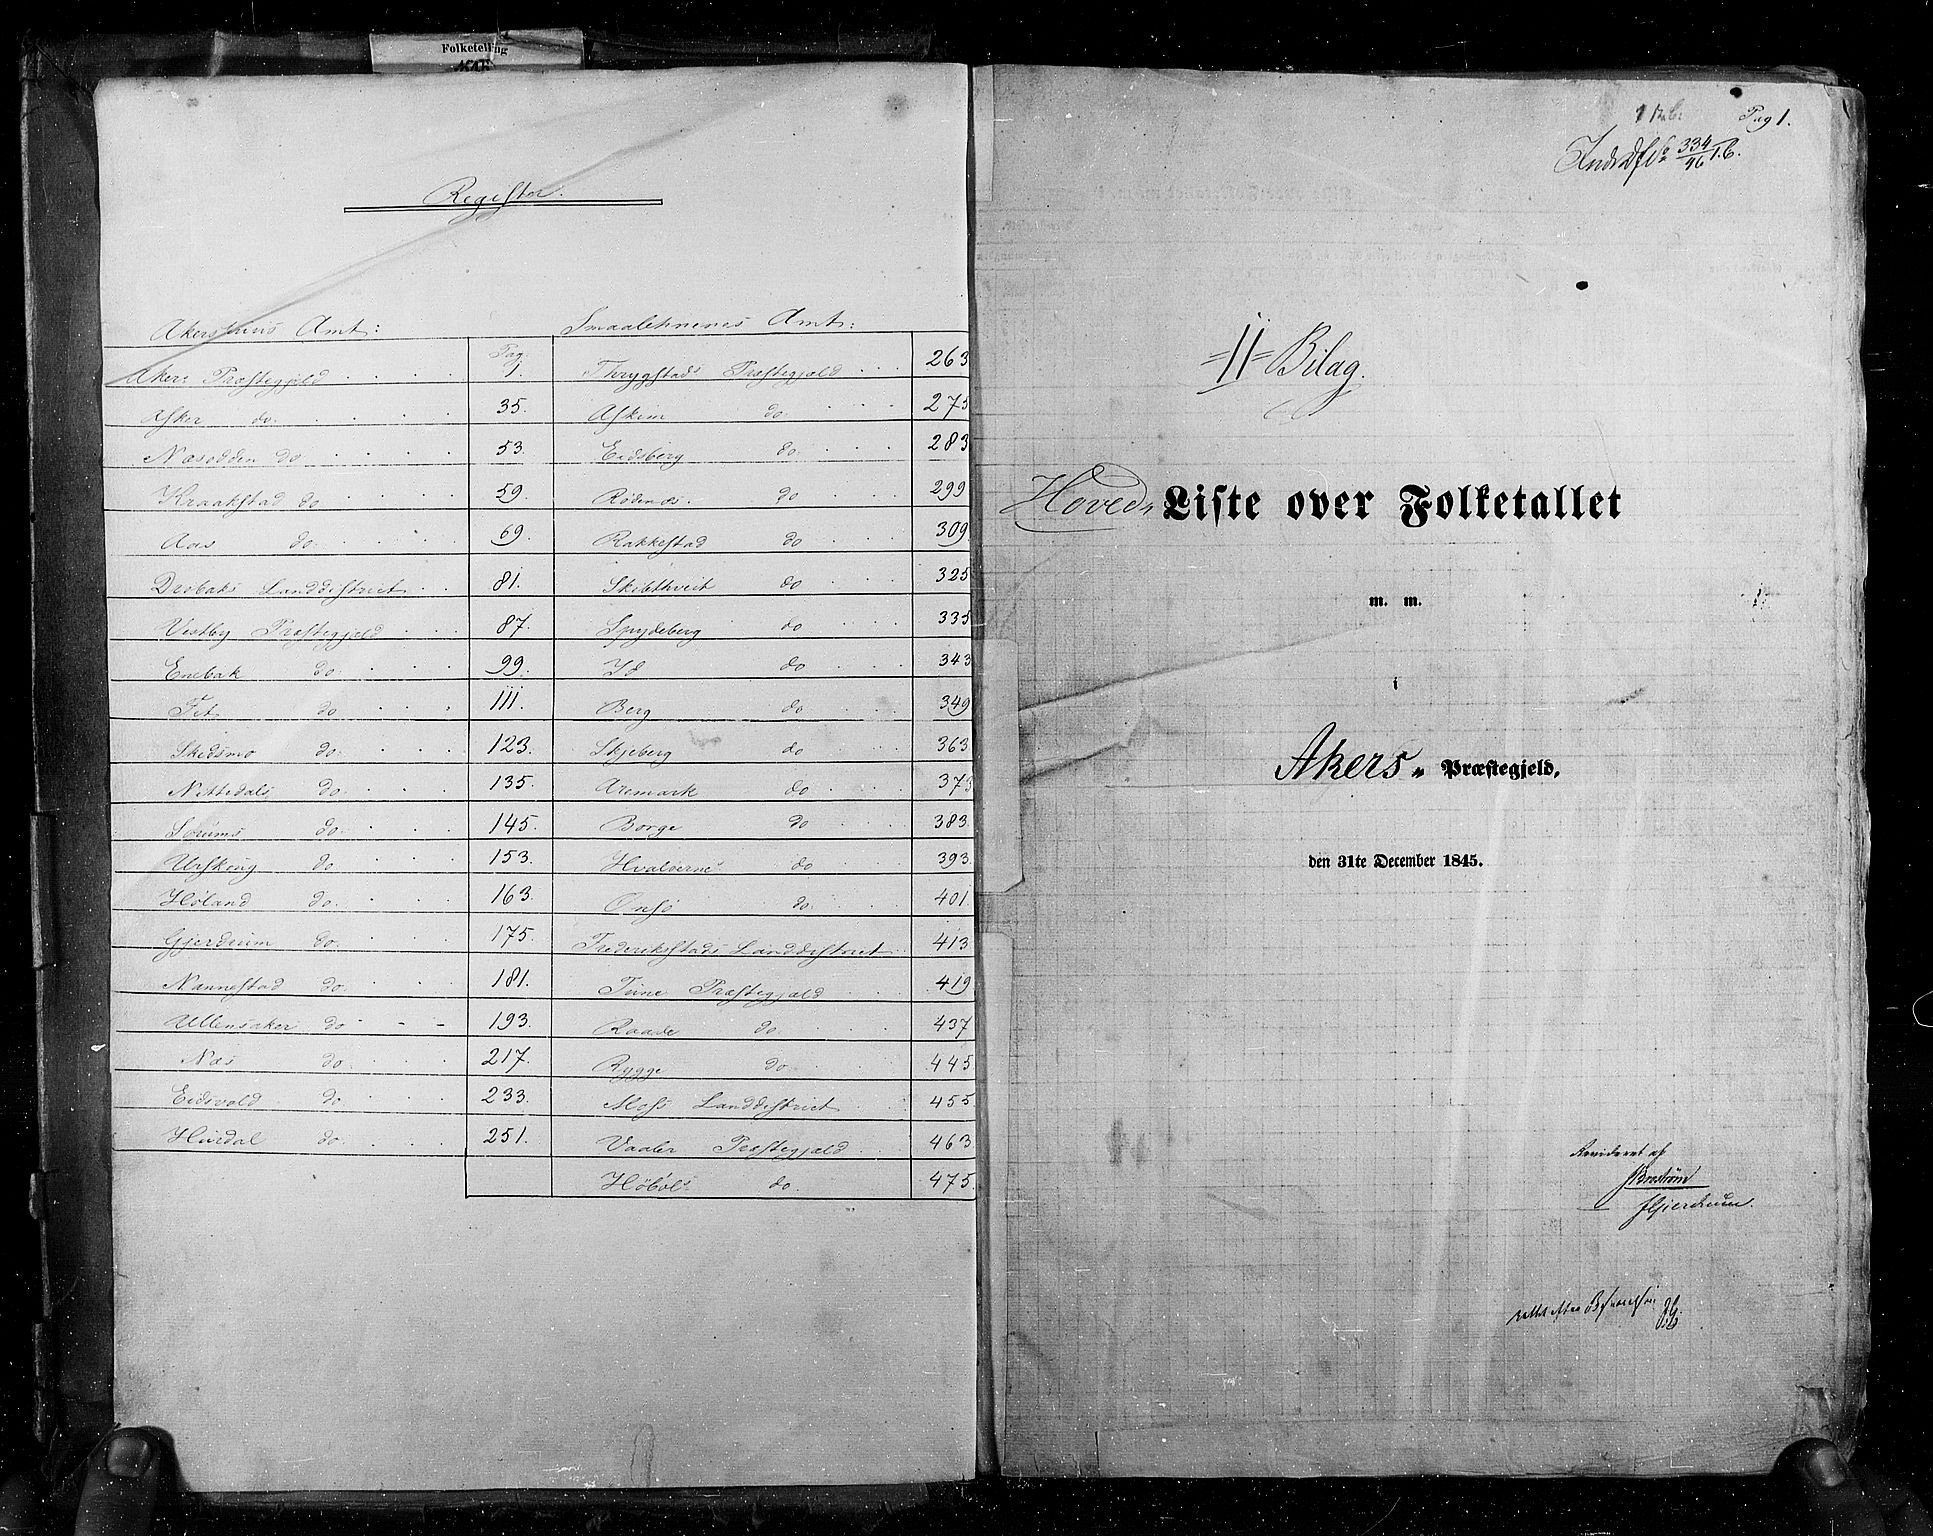 Folketelling
Register.
Akershuus Amt:
Pag.
Akers Præstegjæld 1.
Asker do. 35.
Næsodden do 53.
Kraakstad do 59.
Aas do. 69.
Drøbaks Landdistrict 81.
Vestby Præstegjæld 87.
Enebak do. 99.
Fet do 111.
Skedsmo do. 123.
Nittedals do. 135.
Sørums do. 145.
Urskoug do 153.
Høland do. 163.
Gjerdrum do. 175.
Nannestad do. 181.
Ullensaker do 193.
Næs do. 217.
Eidsvold do 233.
Hurdal do. 251.
Smaalehnenes Amt:
Thrygstads Præstegjæld 263
Askim do. 275
Eidsberg do. 283
Rødenæs. do 299
Rakkestad do 309
Skibthveit do 325
Spydeberg do 335
Id do 343
Berg do 349
Skjeberg do 363
Aremark do 373
Borge do 383
Hvaløerne do 393
Onsø do. 401
Frederikstads Landdistrict 413
Tune Præstegjæld 419
Raade do. 437
Rygge do. 445
Moss Landdistrict 455
Vaaler Præstegjæld 463
Høbøl do. 475
Pag 1.
334/46 I.C.
11 Bilag.
Hoved Liste over Folketallet
m. m.
i
Akers Præstegjeld,
den 31te December 1845.
Revideret af
Brostrøm
Gjerdrum.